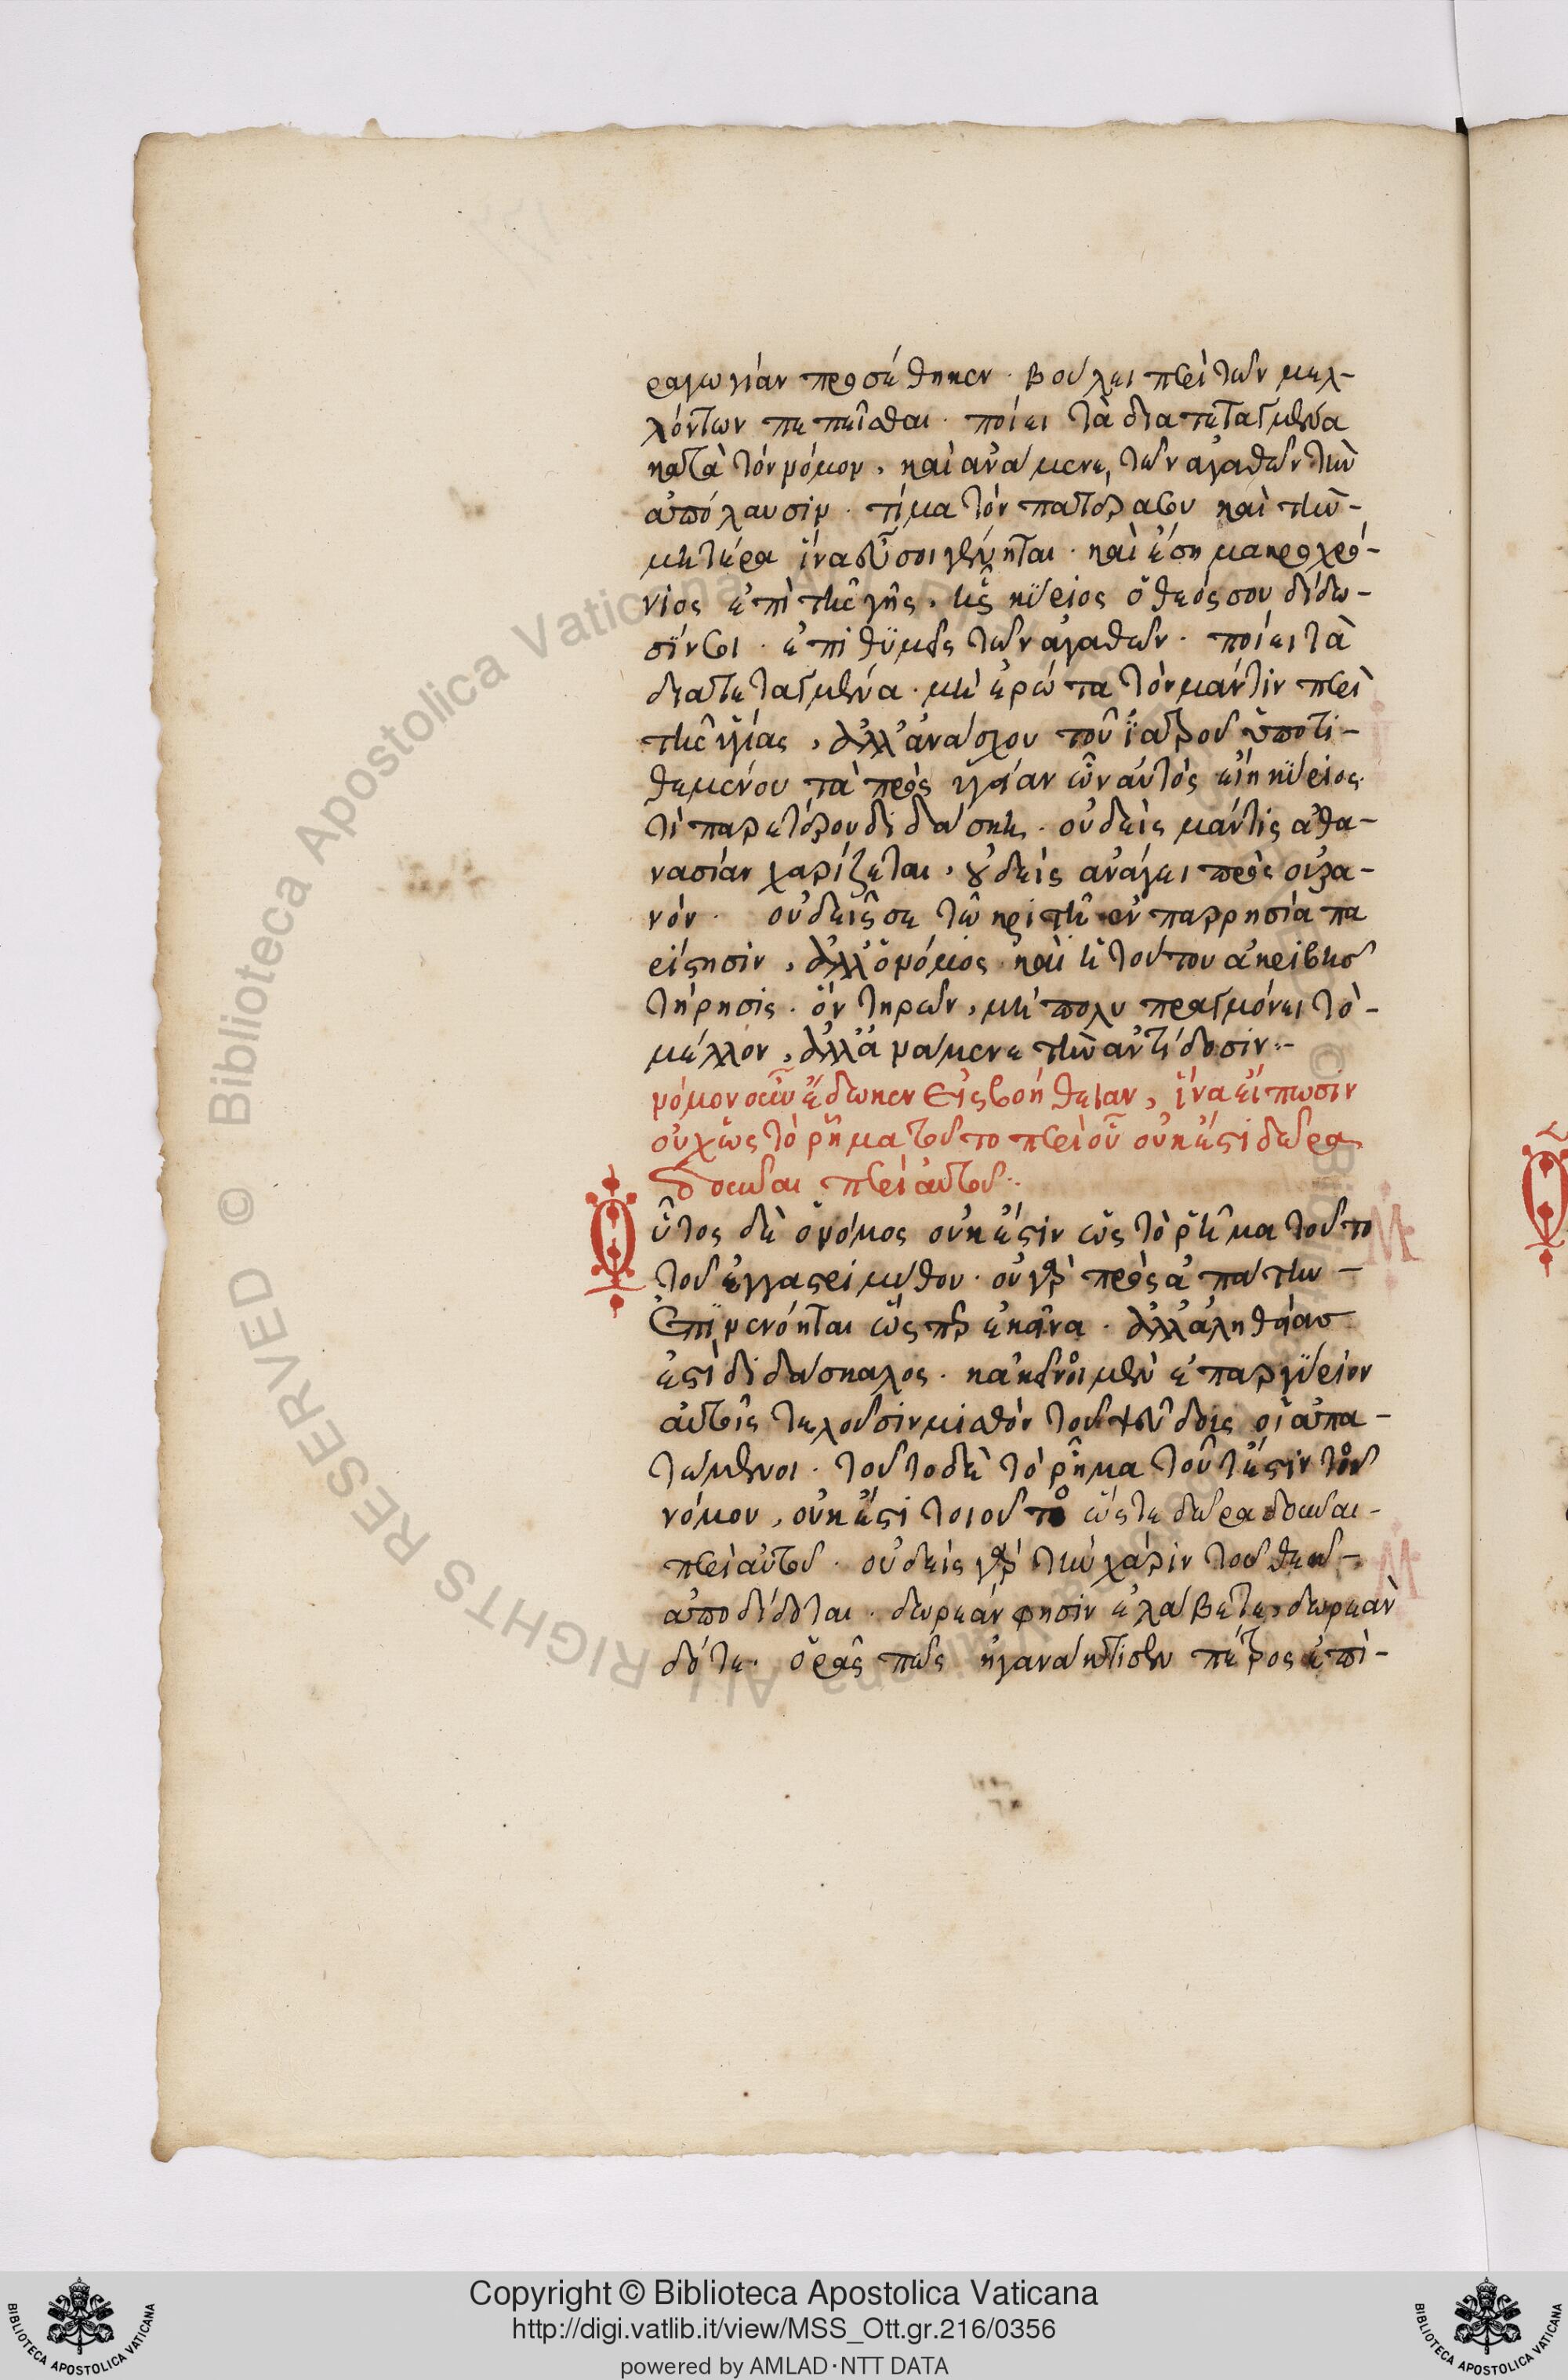 ραγωγίαν προσέθηκεν. Βούλει περὶ τῶν μελ-
λόντων πεπεῖσθαι. ποίει τὰ διατεταγμένα
κατὰ τὸν νόμον, καὶ ἀνάμενε, τῶν ἀγαθῶν τὴν
ἀπόλαυσιν. τίμα τὸν πατέρα σου καὶ τὴν-
μητέρα ἵνα εὖ σοι γένηται. καὶ ἔσῃ μακροχρό-
νιος ἐπὶ τῆς γῆς, ἧς κύριος ὁ θεός σου δίδω-
σίν σοι. ἐπιθυμεῖς τῶν ἀγαθῶν. ποίει τὰ
διατεταγμένα. μὴ ἐρώτα τὸν μάντιν περὶ
τῆς ὑγίας, ἀλλ' ἀνάσχου τοῦ ἰατροῦ ὑποτι-
θεμένου τὰ πρὸς ὑγείαν ὧν αὐτὸς εἴη κύριος.
τί παρ' ἑτέρου διδάσκῃ. οὐδεὶς μάντις ἀθα-
νασίαν χαρίζεται, οὐδεὶς ἀνάγει πρὸς οὐρα-
νόν. οὐδείς σε τῶ κριτῆ ἐν παρρησία πα
ρίστησιν, ἀλλ' ὁ νόμος καὶ ἡ τούτου ἀκριβὴς
τήρησις. ὃν τηρῶν, μὴ πολυπραγμόνει τὸ-
μέλλον, ἀλλ' ἀνάμενε τὴν ἀντίδοσιν:-
νόμον οὖν ἔδωκεν εἰς βοήθειαν, ἵνα εἴπωσιν
οὐχ ὡς τὸ ῥῆμα τοῦτο περὶ οὗ οὐκ ἔστι δῶρα
δοῦναι περὶ αὐτοῦ:-
Οὗτος δὲ ὁ νόμος οὐκ ἔστιν ὡς τὸ ῥῆμα τοῦτο
τοῦ ἐγγαστριμύθου. οὐ γὰρ πρὸς ἀπάτην-
ἐπινενόηται ὥσπερ ἐκεῖνα. ἀλλ' ἀληθείας
ἐστὶ διδάσκαλος. κἀκεῖνοι μὲν ἐπ' ἀργύριον
αὐτοῖς τελοῦσιν μισθὸν τοῦ ψεύδους οἱ ἀπα-
τώμενοι. τοῦτο δὲ τὸ ῥῆμα τοῦτ' ἔστιν τοῦ
νόμου, οὐκ ἔστι τοιοῦτο ὥστε δῶρα δοῦναι-
περὶ αὐτοῦ. οὐδεὶς γὰρ τὴν χάριν τοῦ θεοῦ-
ἀποδίδοται. δωρεάν φησιν ἐλάβετε, δωρεὰν
δότε. ὁρᾶς πῶς ἠγανάκτισεν πέτρος ἐπὶ-
Copyright © Biblioteca Apostolica Vaticana
http://digi.vatlib.it/view/MSS_Ott.gr.216/0356
powered by AMLAD·NTT DATA